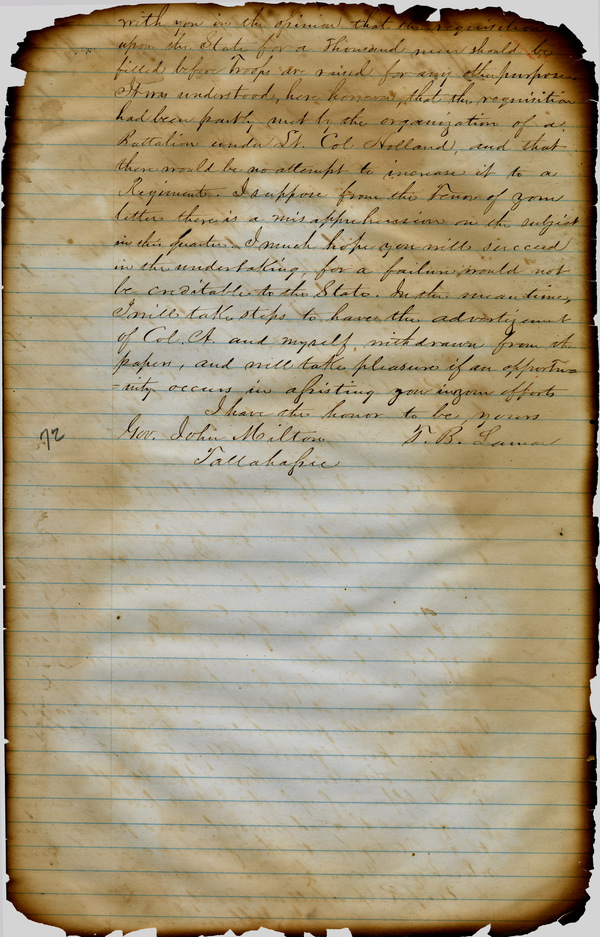 with you in the opinion that the requisition
upon the State for a thousand men should be
filled before Troops are raised for any other purpose.
It was understood, here, however, that the requisition
had been partly met by the organization of a
Battalion under Lt. Col Holland, and that
there would be no attempt to increase it to a
Regiment. I suppose from the Tenor of your
letter there is a misapprehension on the subject
in this quarter. I much hope you will succeed
in the undertaking, for a failure would not
be creditable to the State. In the mean time,
I will take steps to have the advertizment
of Col. A. and myself withdrawn from the
papers, and will take pleasure if an opportu-
=nity occurs in assisting you in your efforts
I have the honor to be, yours
Gov. John Milton T. B. Lamar
Tallahassee
72